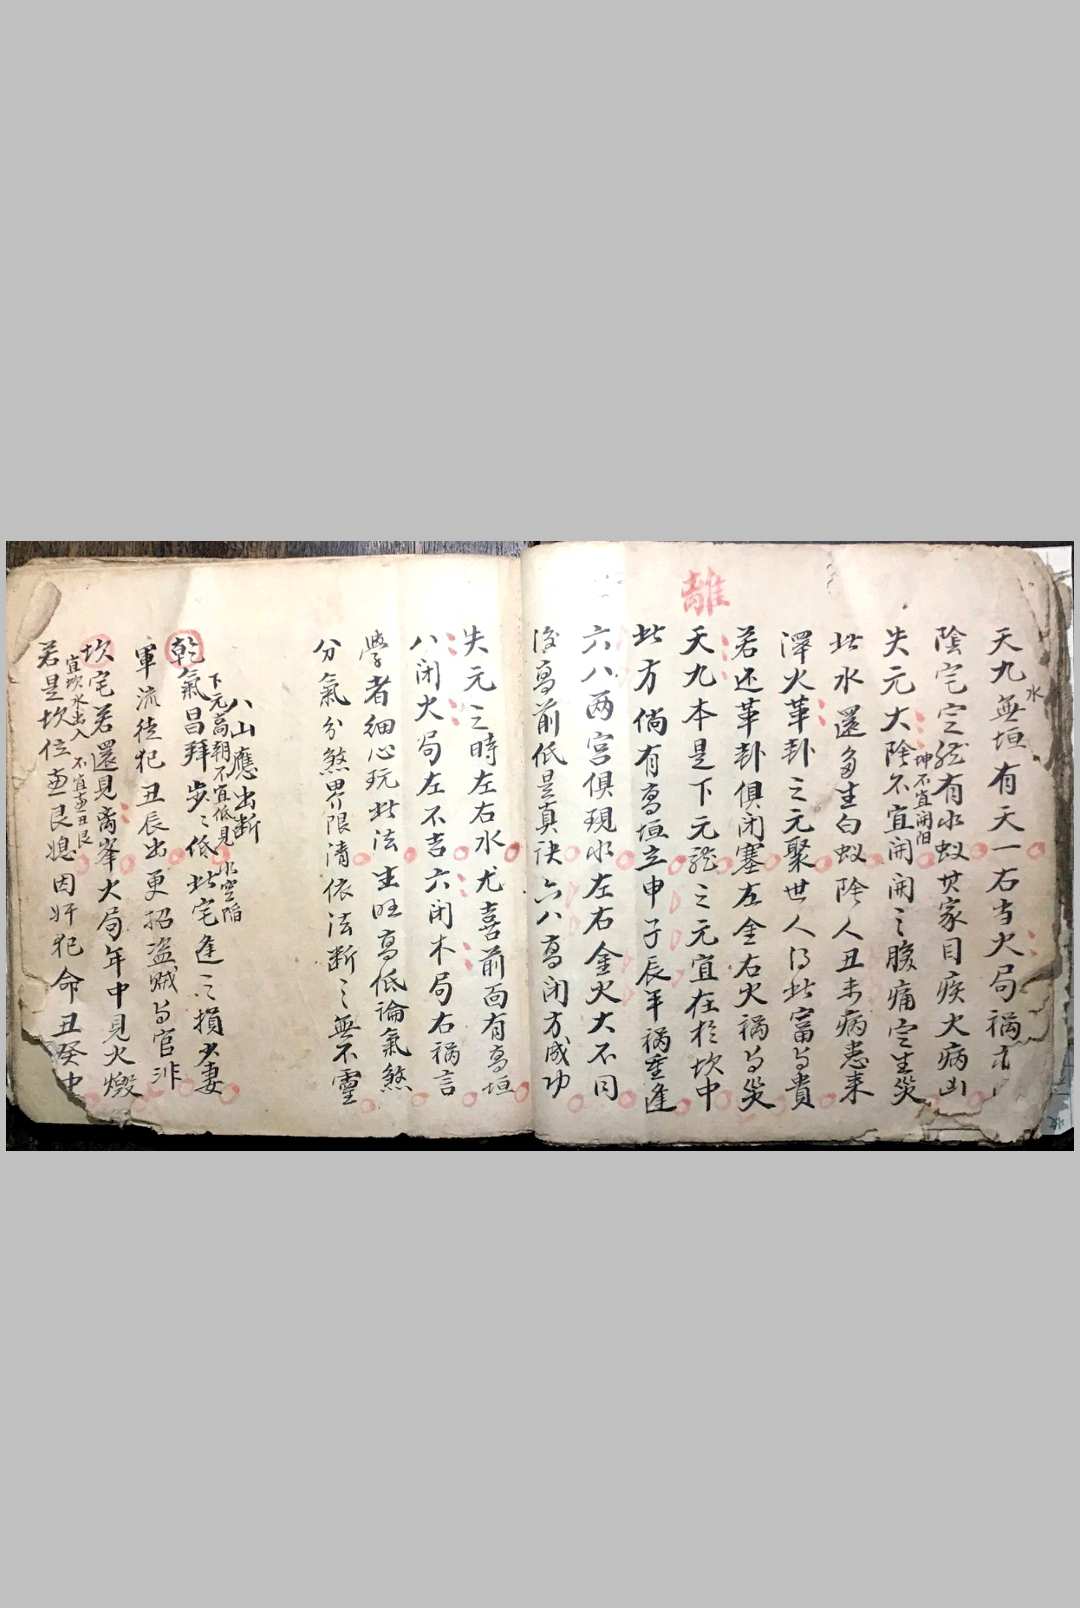 水
天九無垣有天一右当火局禍
陰宅定然有水蚁其家目疾火病凶
失元大陰不宜開開之腹痛定生災
坤不宜開陽
此水還多生白蚁陰人丑未病患来
澤火革卦之元聚世人得此富与貴
若还革卦俱闭塞左金右火禍与災
離
天九本是下元龍之元宜在於坎中
此方倘有高垣立申子辰年禍重逢
六八两宫俱現水左右金火大不同
後高前低是真诀六八高闭方成功
失元之時左右水尤喜前面有高垣
八闭火局左不吉六闭木局右禍言
學者细心玩此法生旺高低論氣煞
分氣分煞界限清依法断之無不靈
八山應出断
下元高朝不宜低見水空陷
乾氣昌拜步々低此宅逢之損少妻
軍流徒犯丑辰出更招盗贼与官非
坎宅若還見离峯火局年中見火燬
宜坎水出入不宜直丑艮
若是坎位直艮媳因奸犯命丑癸中